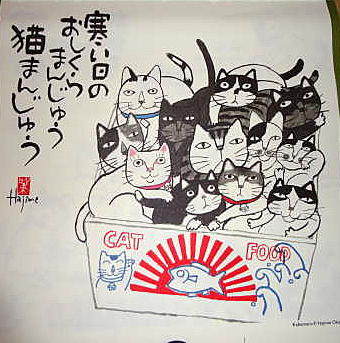 寒い日の
おしくら
まんじゅう
猫まんじゅう
Hajime
CAT
FOOD